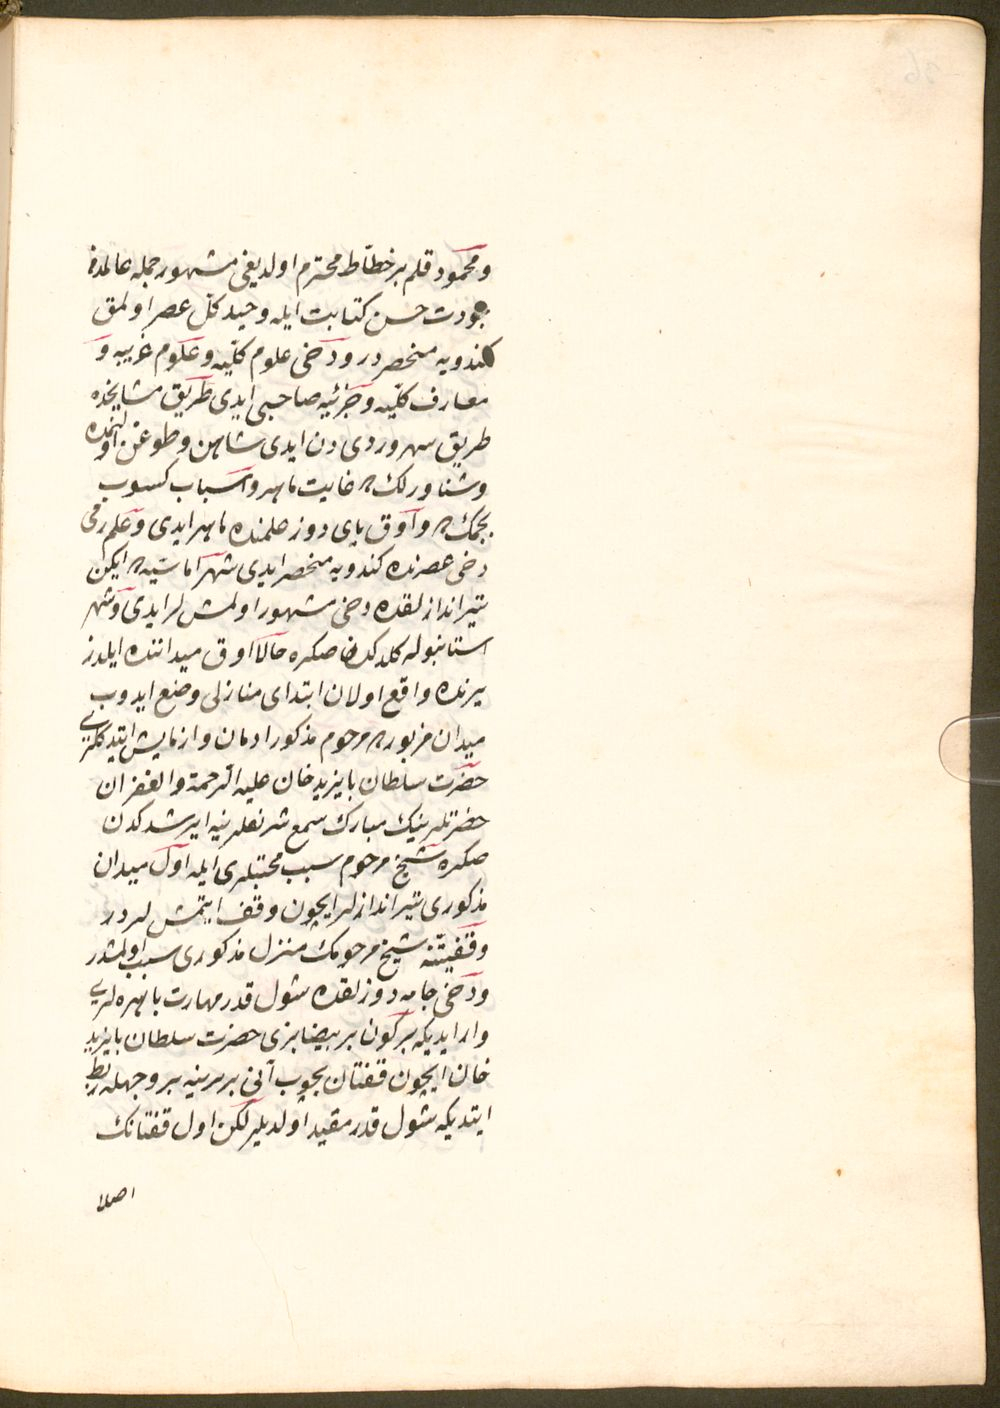 ومحمود قلم بر خطّاط محترم اولديغى مشهور جمله عالمدر
جودت حسن كتابت ايله وحيد كلّ عصر اولمق
كندويه منحصر در ودخى علوم كليّه وعلوم غريبه و
معارف كليّه وجزئيه صاحبى ايدى طريق مشايخده
طريق سهروردى دن ايدى شاهن وطوغن اولنمده
وشناورلكده غايت ماهر واسباب كسوب
بچمكده وآوق پاى دوز علمنده ماهر ايدى وعلم رمى
دخى عصرنده كندويه منحصر ايدى شهر اماسيّه ده ايكن
تيراندازلقده دخى مشهور اولمشلر ايدى وشهر
استانبوله كلدكدن صكره حالا اوق ميداننده ايلدز
يرنده واقع اولان ابتداى منازلى وضع ايدوب
ميدان مزبورده مرحوم مذكور ادمان وازمايش ايتدكلرى
حضرت سلطان بايزيد خان عليه الرحمة والغفران
حضرتلرينك مبارك سمع شريفلرينه ايرشدكدن
صكره شيخ مرحوم سبب محبتلرى ايله اوّل ميدان
مذكورى تيراندازلر ايچون وقف ايتمشلردر
وقفيّتنه شيخ مرحومك منزل مذكورى سبب اولمشدر
ودخى جامه دوزلقده شول قدر مهارت باهره لرى
وار ايديكه بر كون بر بيضا بزى حضرت سلطان بايزيد
خان ايچون قفتان بچوب آنى بربرينه بر وجهله ربط
ايتديكه شول قدر مقيد اولديلر لكن اول قفتانك
اصلا